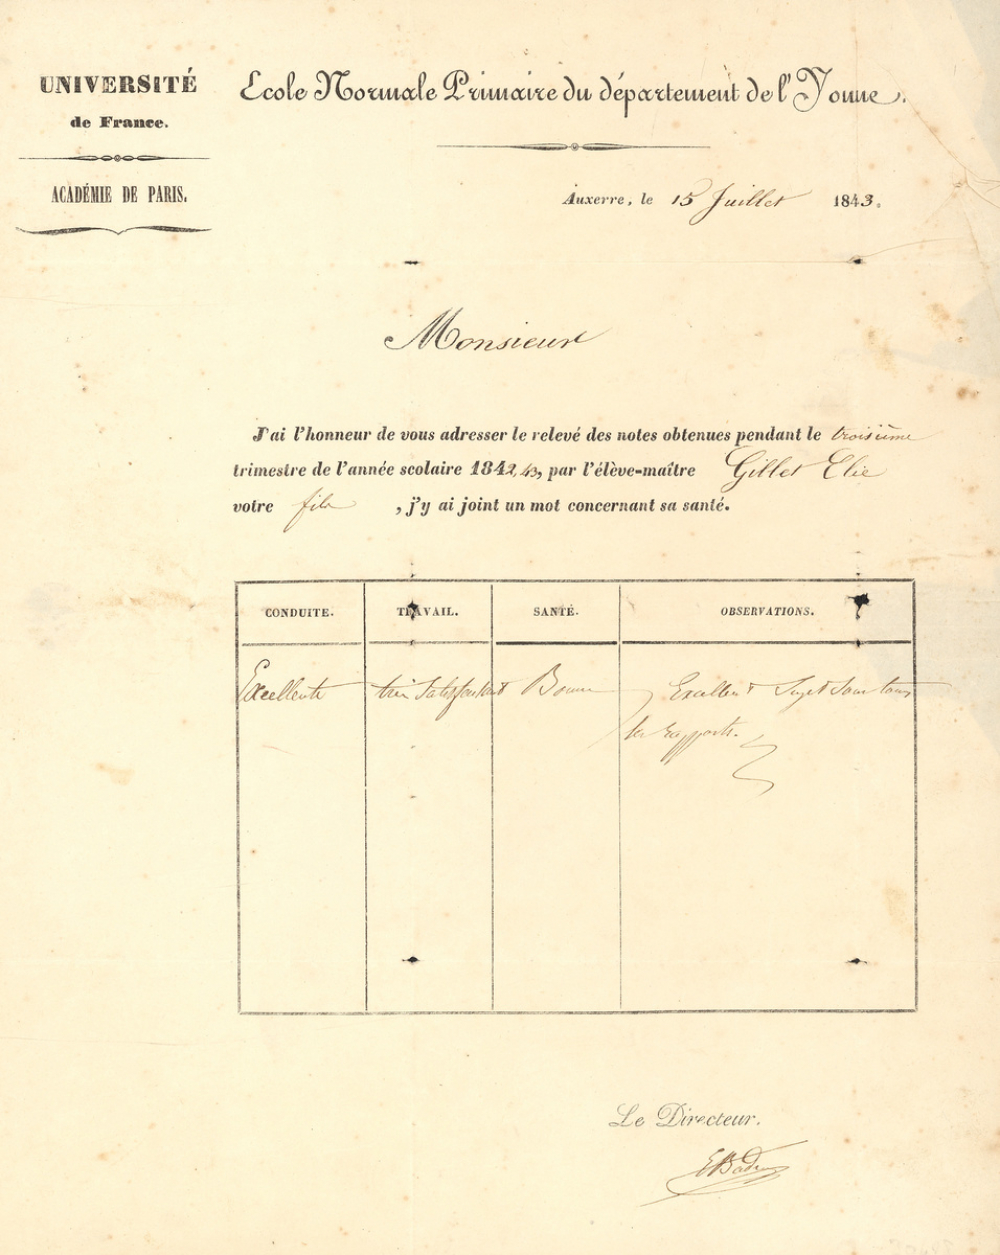 UNIVERSITÉ
de France.
ACADÉMIE DE PARIS.
Ecole Normale Primaire du département de l'Yonne.
Auxerre, le 15 Juillet 1843.
Monsieur
J'ai l'honneur de vous adresser le relevé des notes obtenues pendant le troisième
trimestre de l'année scolaire 1842,43, par l'élève-maître Gillet Elie
votre fils , j'y ai joint un mot concernant sa santé.
CONDUITE. TRAVAIL. SANTÉ. OBSERVATIONS.
Excellente très satisfaisant Bonne Excellent Sujet sous tous
les rapports.
Le Directeur.